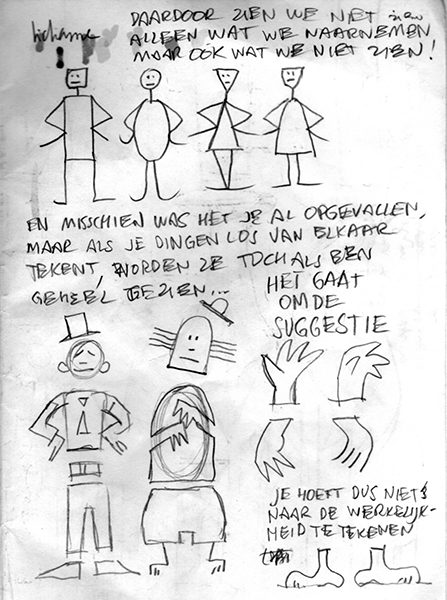 DAARDOOR ZIEN WE NIET
ALLEEN WAT WE NAARNEMEN
MAAR OOK WAT WE NIET ZIEN!
EN MISSCHIEN WAS HET JE AL OPGEVALLEN,
MAAR ALS JE DINGEN LOS VAN ELKAAR
TEKENT, WORDEN ZE TOCH ALS EEN
GEHEEL GEZIEN...
HET GAAT
OM DE
SUGGESTIE
JE HOEFT DUS NIET
NAAR DE WERKELIJK-
HEID TE TEKENEN